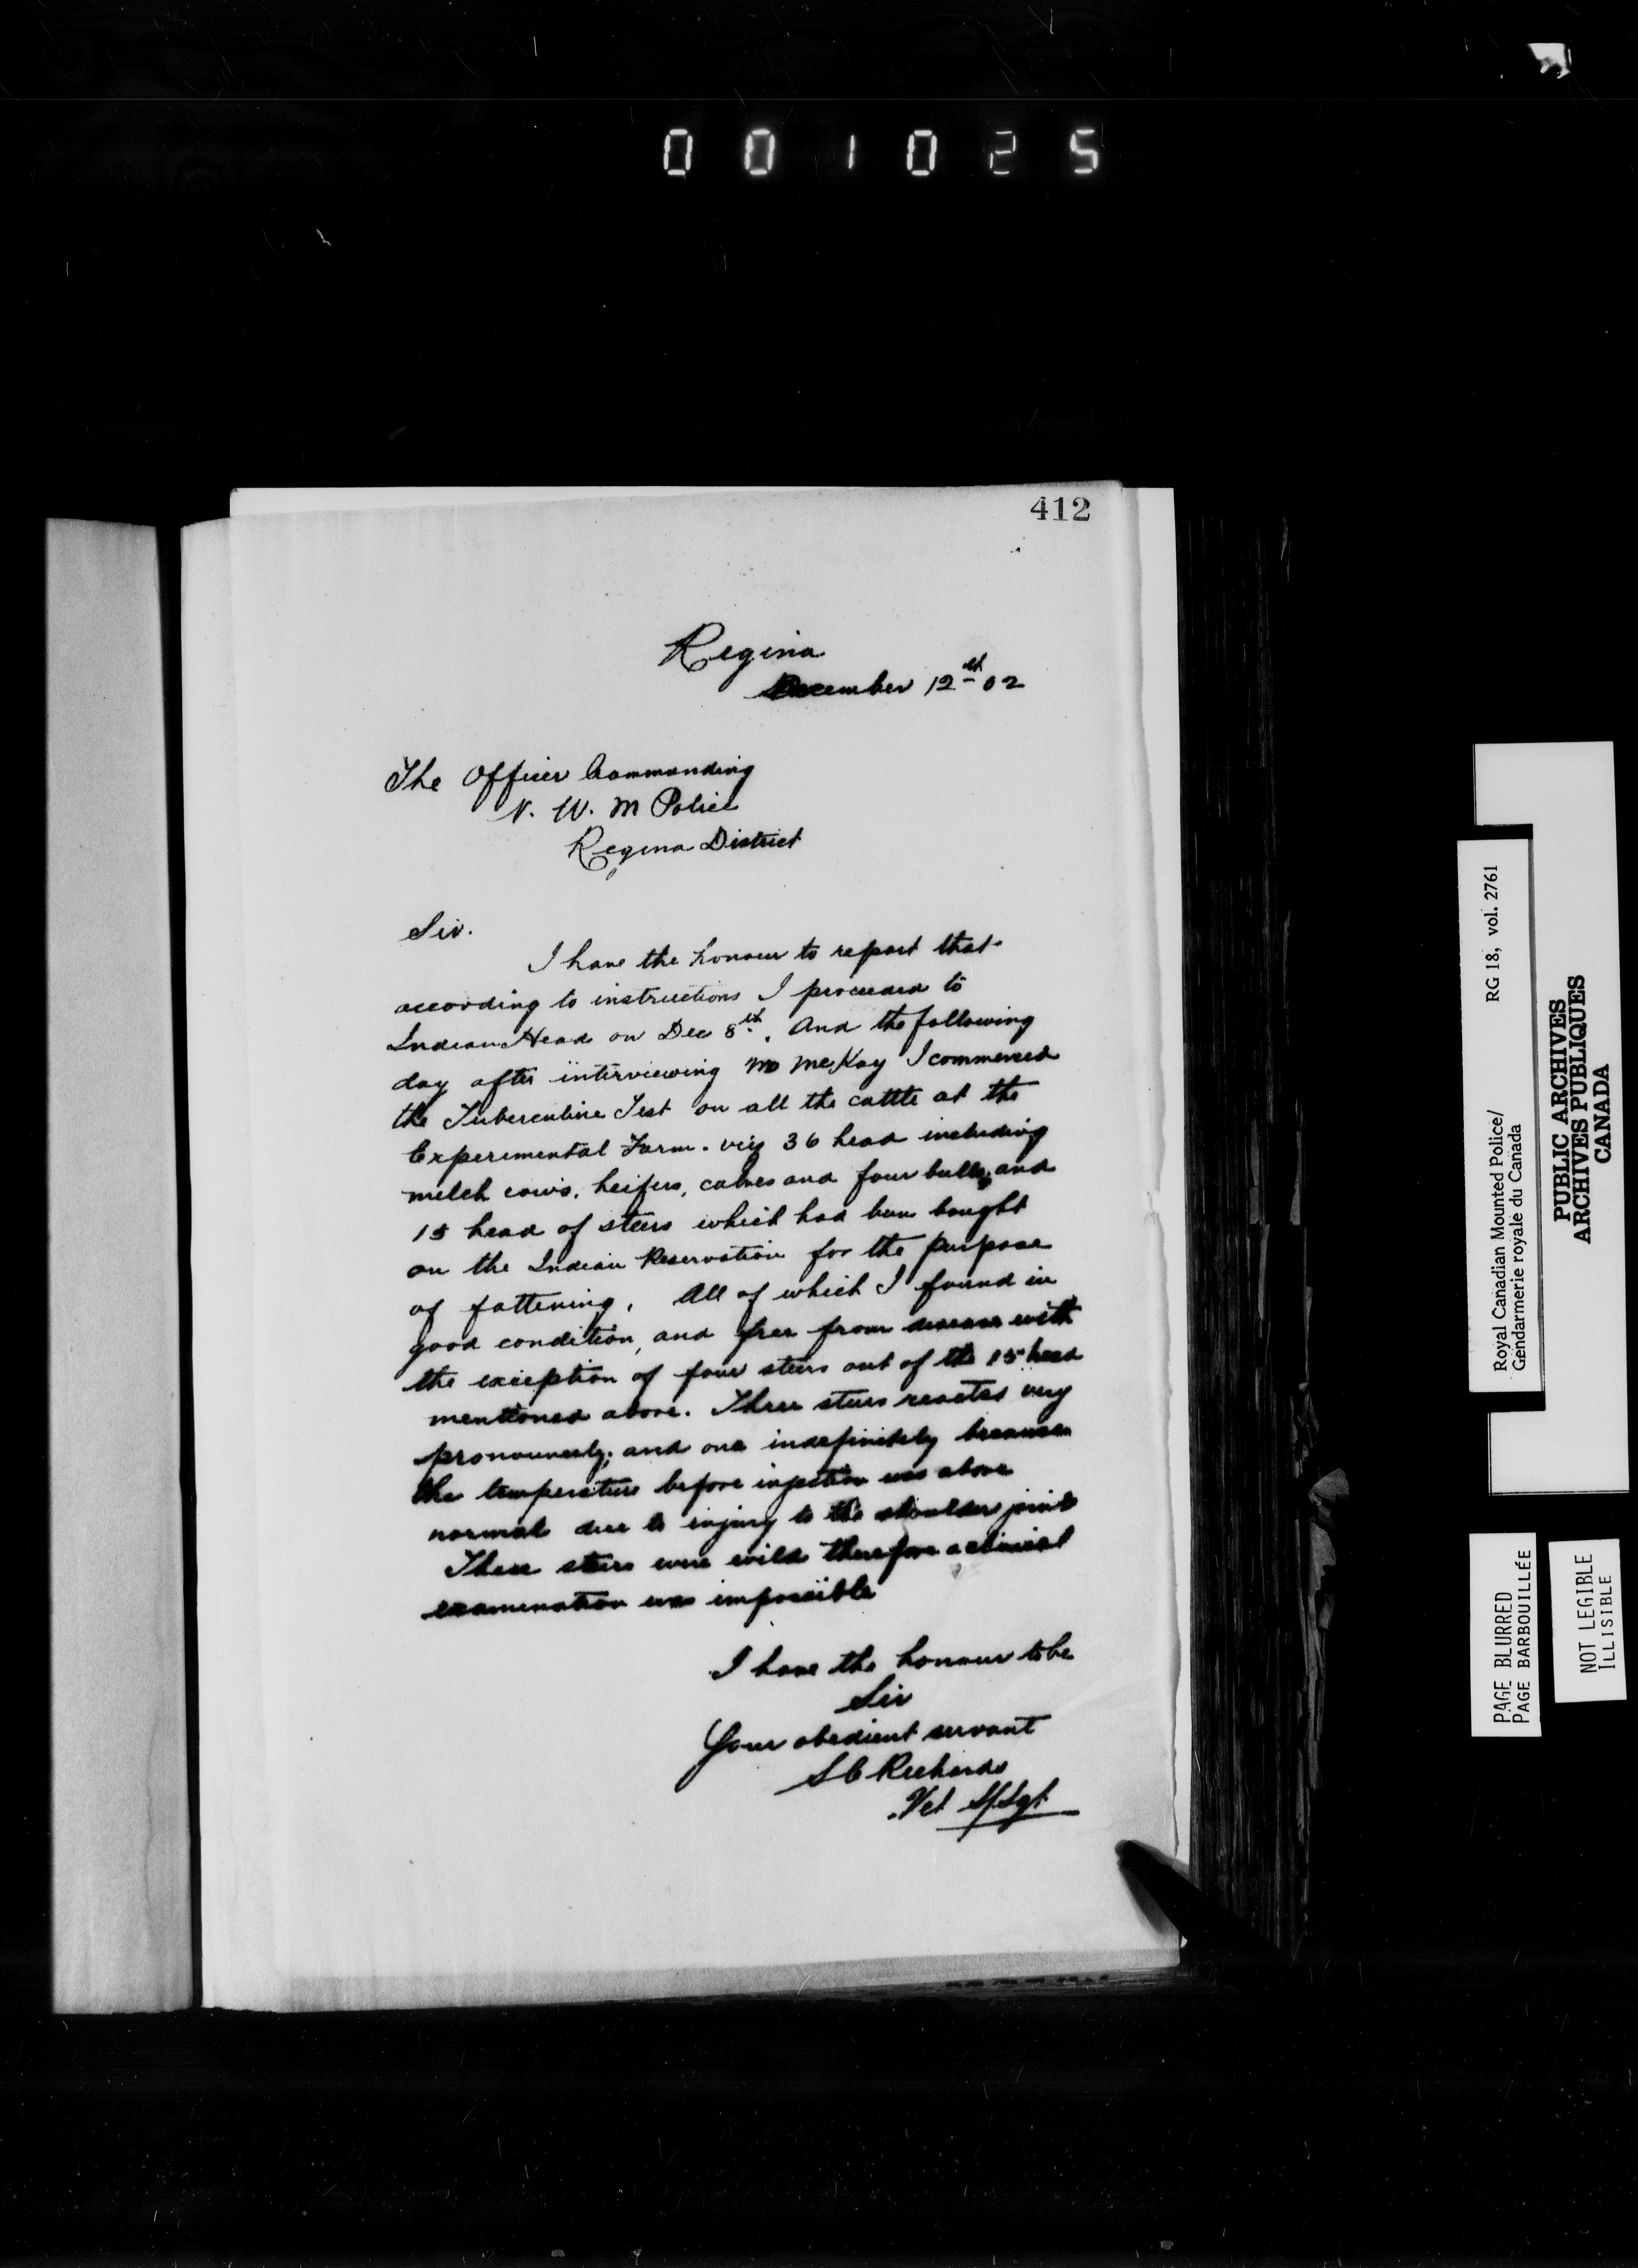 001025
412
Regina
December 12th 02
The Officer Commanding
N. W. M Police
Regina District
Sir.
I have the honour to report that
according to instructions I proceeded to
Indian Head on Dec 8th. And the following
day after interviewing Mr McKay I commenced
the Tuberculine Test on all the cattle at the
Experimental Farm. viz 36 head including
milch cows, heifers, calves and four bulls, and
15 head of steers which had been bought
on the Indian Reservation for the purpose
of fattening. All of which I found in
good condition, and free from disease with
the exception of four steers out of the 15 head
mentioned above. Three steers reacted very
pronouncedly; and one indefinitely because
the temperature before injection was above
normal due to injury to the shoulder joint
These steers were wild therefore a clinical
examination was impossible
I have the honour to be
Sir
Your obedient servant
S C Richards
Vet S/Sgt
Royal Canadian Mounted Police/ RG 18, vol. 2761
Gendarmerie royale du Canada
PUBLIC ARCHIVES
ARCHIVES PUBLIQUES
CANADA
PAGE BLURRED
PAGE BARBOUILLÉE
NOT LEGIBLE
ILLISIBLE